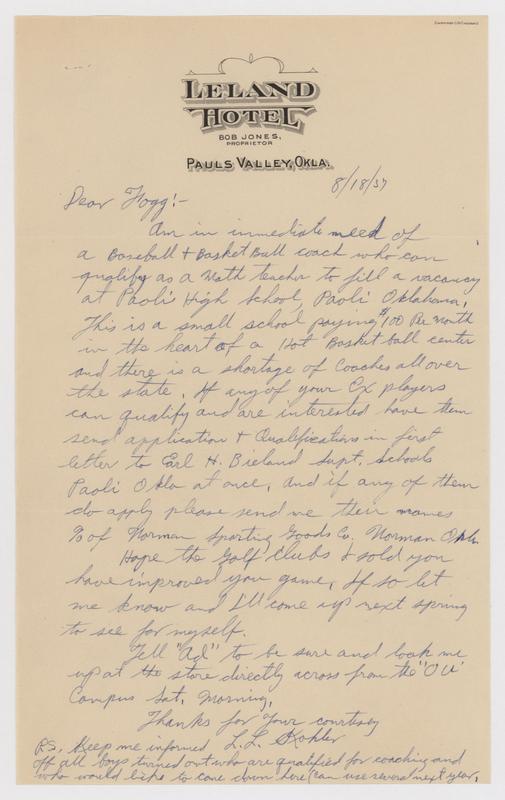 LELAND
HOTEL
BOB JONES,
PROPRIETOR
PAULS VALLEY, OKLA.
8/18/37
Dear Fogg:-
Am in immediate need of
a Baseball + Basket Ball coach who can
qualify as a Math teacher to fill a vacancy
at Paoli High School, Paoli Oklahoma,
This is a small school paying $100 Per month
in the heart of a Hot Basket ball center
and there is a shortage of Coaches all over
the state. If any of your Ex players
can qualify and are interested have them
send application + Qualifications in first
letter to Earl H. Bieland Supt. Schools
Paoli Okla at once, and if any of them
do apply please send me their names
% of Norman Sporting Goods Co. Norman Okla.
Hope the Golf Clubs I sold you
have improved your game, If so let
me know and I'll come up next spring
to see for myself.
Tell "Ad" to be sure and look me
up at the store directly across from the "OU"
Campus Sat. Morning.
Thanks for Your courtesy
L.L. Kohler
P.S. Keep me informed
of all boys turned out who are qualified for coaching and
who would like to come down here (can use several next year,